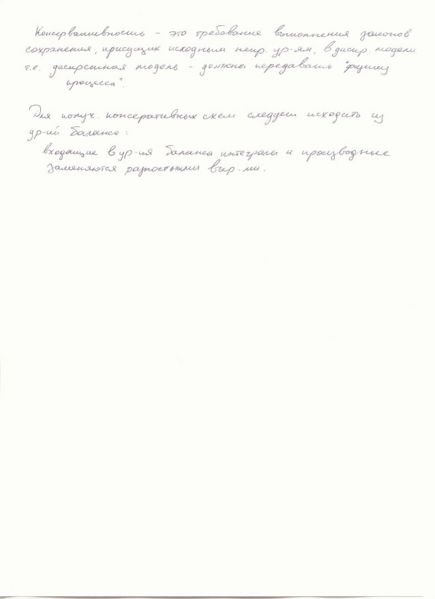 Консервативность - это требование выполнения законов
сохранения, присущих исходным непр. ур-ям, в дискр. модели
т.е. дискретная модель - должна передавать "физику
процесса".
Для получ. консервативных схем следует исходить из
ур-ий баланса:
входящие в ур-ия баланса интегралы и производные
заменяются разностными выр-ми.